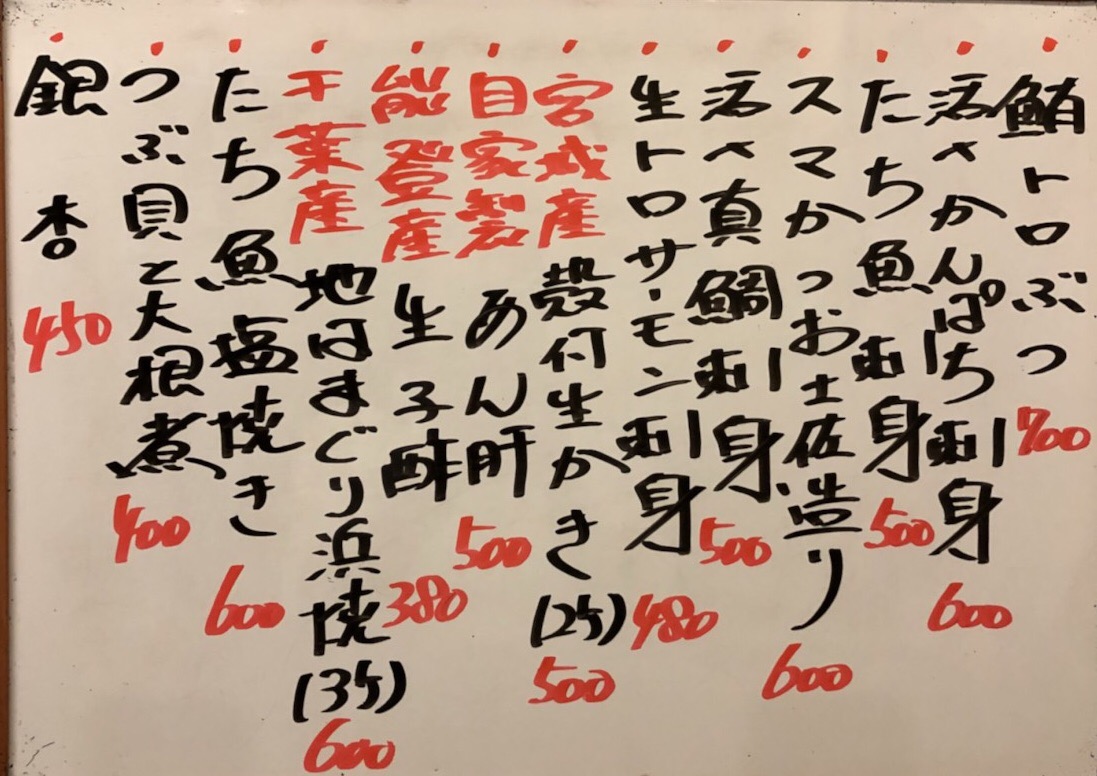 ・鮪トロぶつ 700
・活〆かんぱち刺身 600
・たち魚刺身 500
・スマかつお土佐造り 600
・活〆真鯛刺身 500
・生トロサーモン刺身 480
・宮城産 殻付生かき(2ケ) 500
・自家製 あん肝 500
・能登産 生子酢 380
・千葉産 地はまぐり浜焼(3ケ) 600
・たち魚塩焼き 600
・つぶ貝と大根煮 400
・銀杏 450